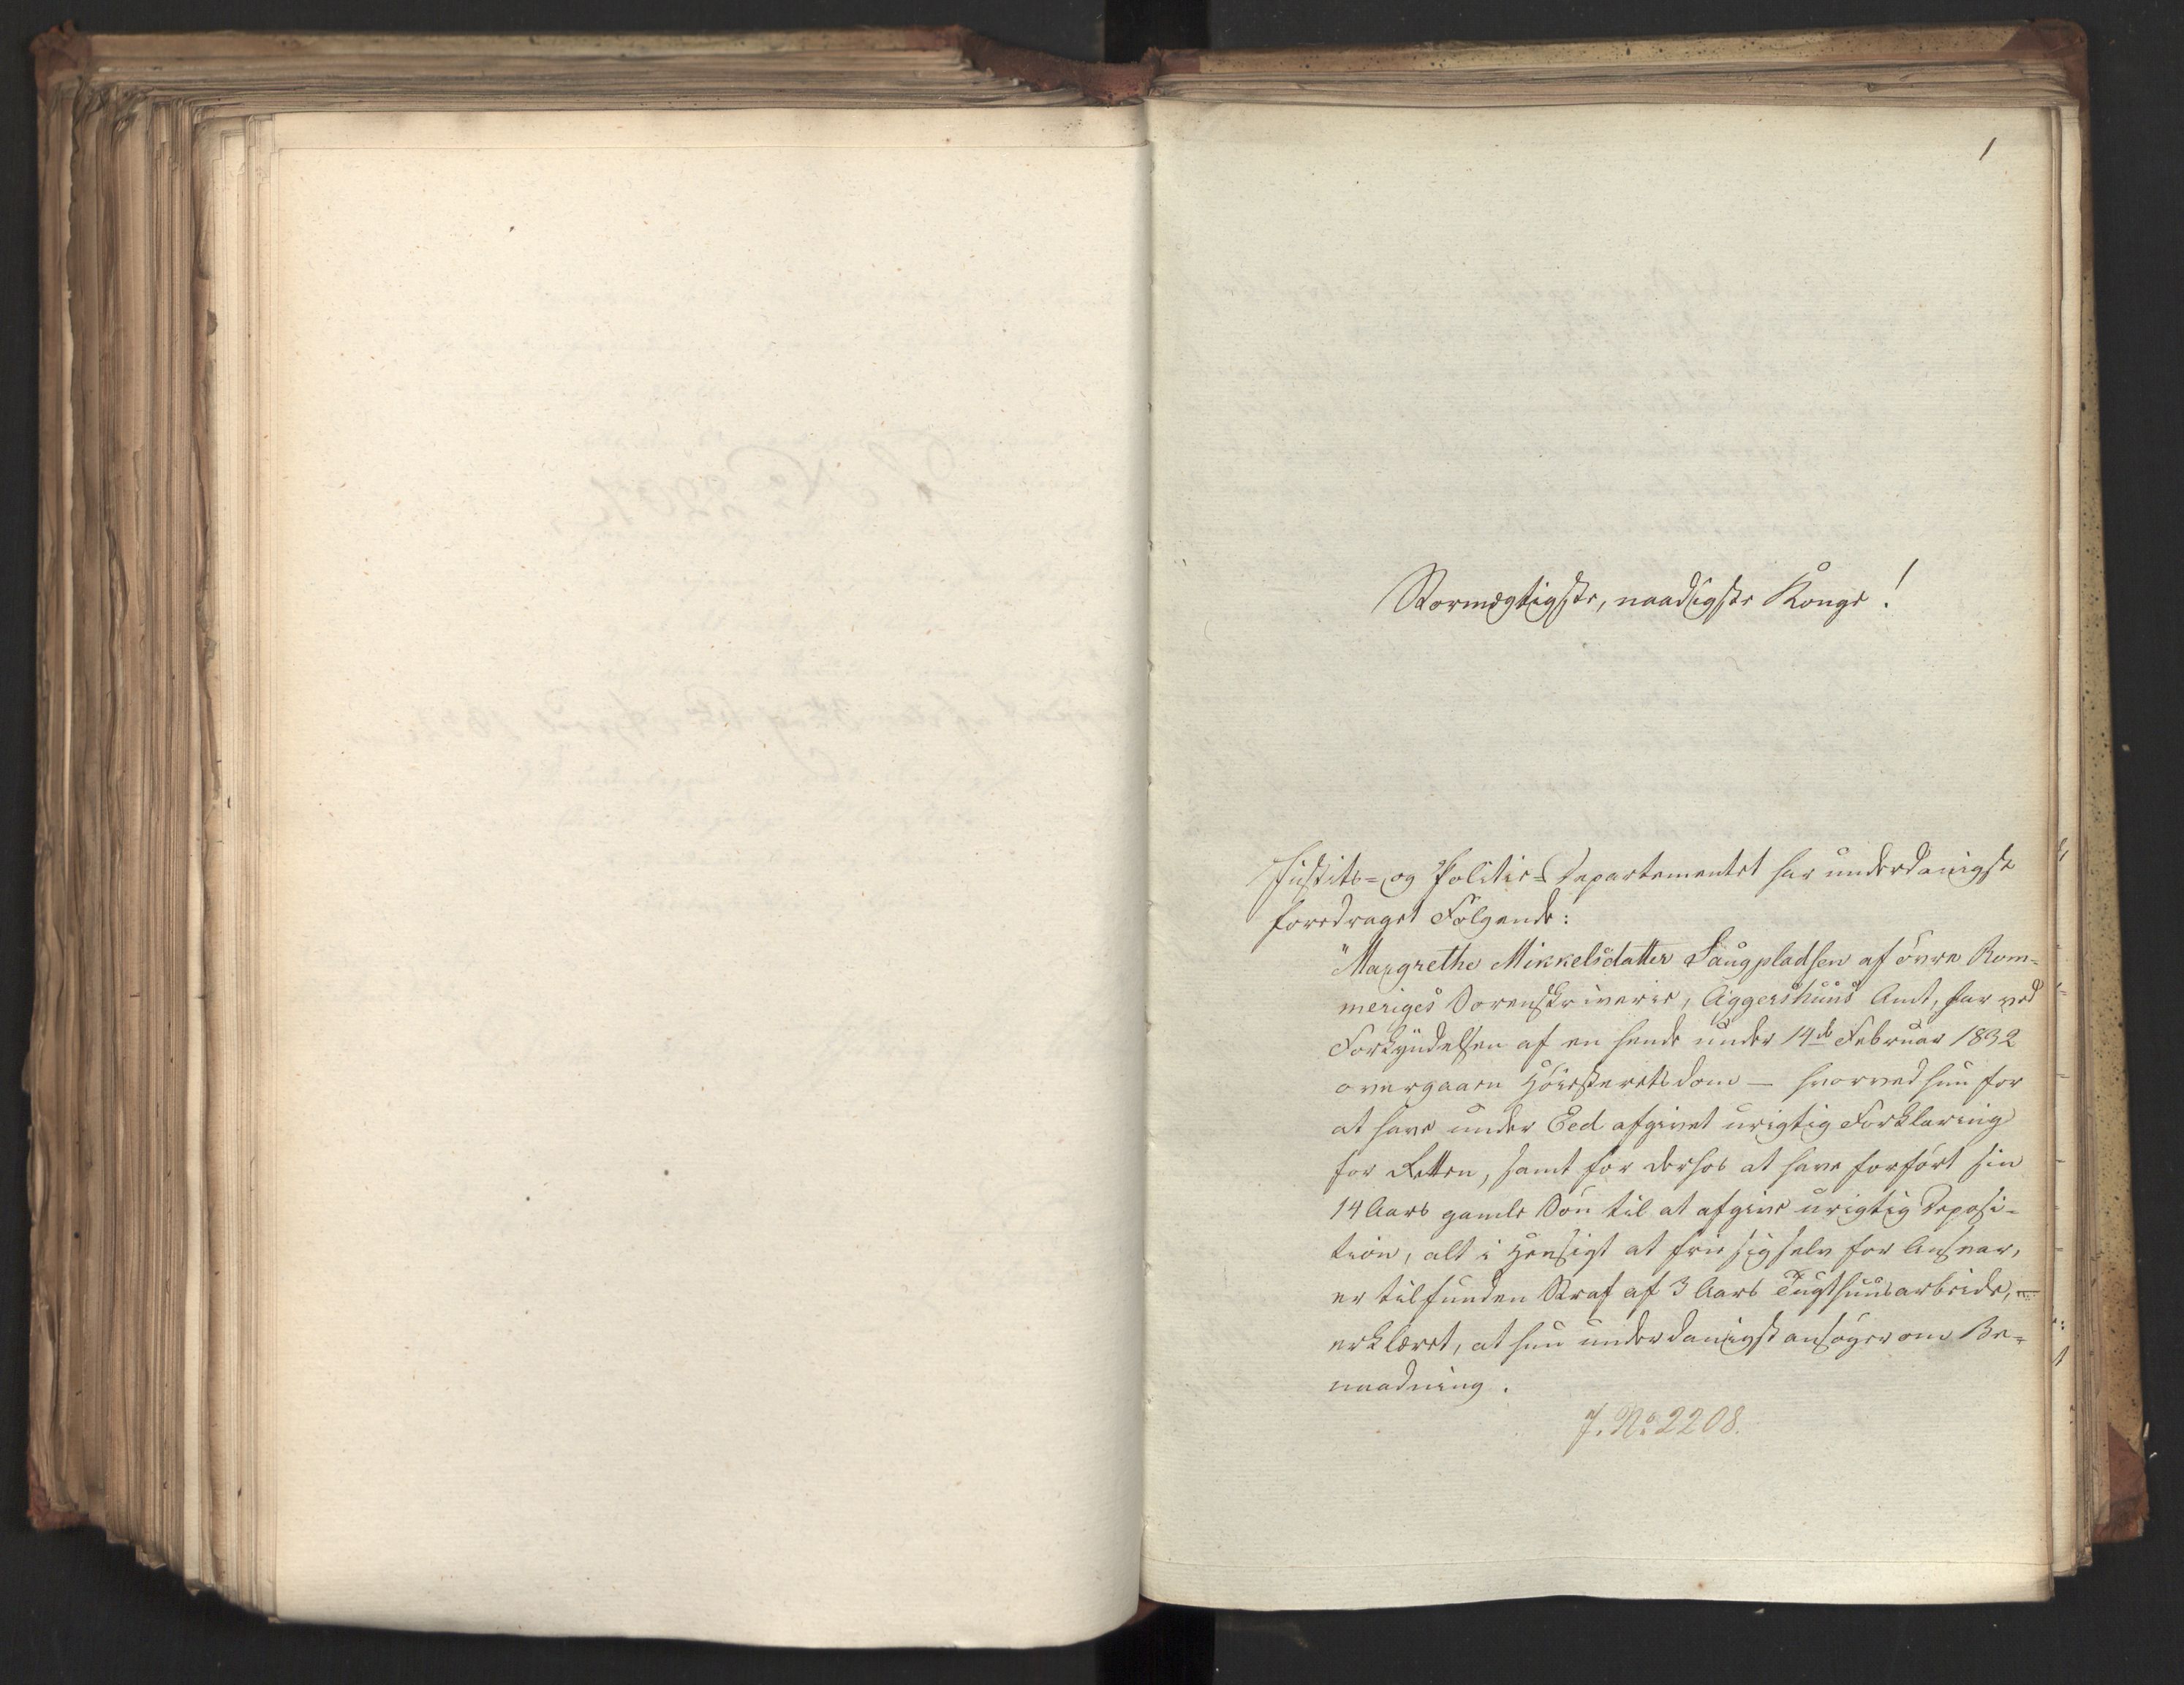 1
Stormægtigste, naadigste Konge!
Justits- og Politie-Departementet har underdanigst
foredraget Følgende:
"Margrethe Mikkelsdatter Saugpladsen af övre Rom-
meriges Sorenskriverie, Aggershuus Amt, har ved
Forkyndelsen af en hende under 14de Februar 1832
overgaaen Höiesteretsdom — hvorved hun for
at have under Eed afgivet urigtig Forklaring
for Retten, samt for derhos at have forfört sin
14 Aars gamle Sön til at afgive urigtig Deposi-
tion, alt i Hensigt at frie sig selv for Ansvar,
er tilfunden Straf af 3 Aars Tugthuusarbeide, —
erklæret, at hun underdanigst ansöger om Be-
naadning.
J. No 2208.